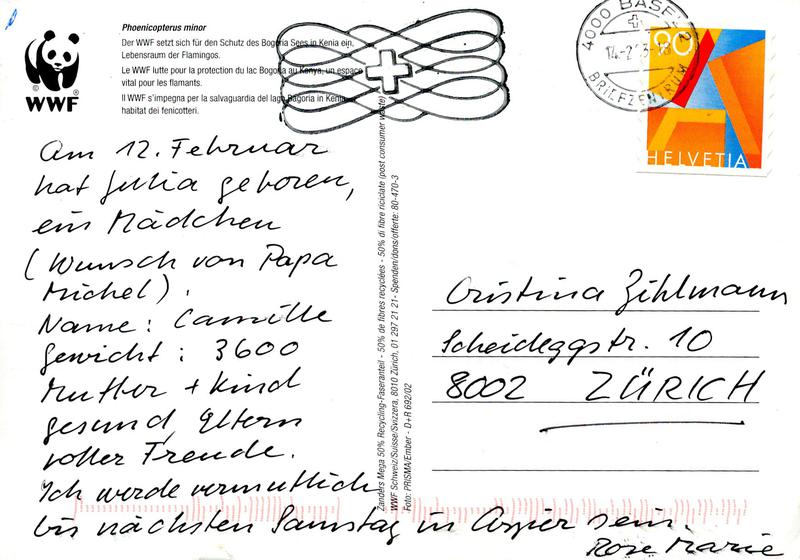 Phoenicopterus minor
Der WWF setzt sich für den Schutz des Bogoria Sees in Kenia ein,
Lebensraum der Flamingos.
Le WWF lutte pour la protection du lac Bogoria au Kenya, un espace
vital pour les flamants.
Il WWF s'impegna per la salvaguardia del lago Bogoria in Kenia,
habitat dei fenicotteri.
WWF
4000 BASEL 2
14-2
BRIEFZENTRUM
90
HELVETIA
Am 12. Februar
hat Julia geboren,
ein Mädchen
(Wunsch von Papa
Michel).
Name: Camille
Gewicht: 3600
Mutter + Kind
gesund, Eltern
voller Freude.
Ich werde vermutlich
bis nächsten Samstag in Asper sein.
Rose Marie
Zanders Mega 50% Recycling-Faseranteil - 50% de fibres recyclées - 50% di fibre riciclate (post consumer waste)
WWF Schweiz/Suisse/Svizzera, 8010 Zürich, 01 297 21 21 - Spenden/dons/offerte: 80-470-3
Foto: PRISMA/Ember - D+R 692/02
Cristina Zihlmann
Scheideggstr. 10
8002 ZÜRICH